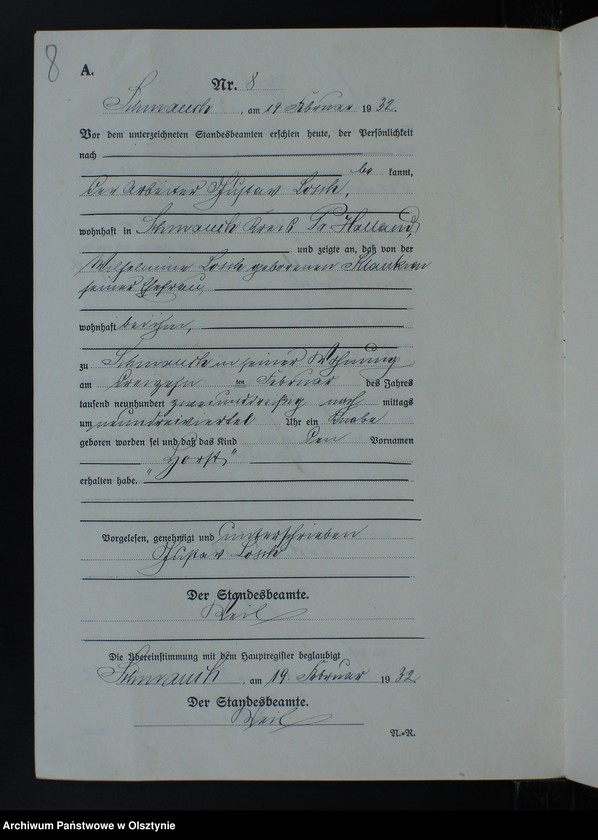 8
A.
Nr. 8
Schmauch, am 19 Februar 1932.
Vor dem unterzeichneten Standesbeamten erschien heute, der Persönlichkeit
nach
be kannt,
der Arbeiter Gustav Losch,
wohnhaft in Schmauch Kreis Pr. Holland,
und zeigte an, daß von der
Wilhelmine Losch geborenen
seiner Ehefrau,
wohnhaft bei ihm,
zu Schmauch in seiner Wohnung
am dreizehn im Februar des Jahres
tausend neunhundert zweiunddreißig nach mittags
um neundreiviertel Uhr ein Knabe
geboren worden sei und daß das Kind den Vornamen
„Horst"
erhalten habe.
Vorgelesen, genehmigt und unterschrieben
Gustav Losch
Der Standesbeamte.
Die Übereinstimmung mit dem Hauptregister beglaubigt
Schmauch, am 19. Februar 1932.
Der Standesbeamte.
N.-R.
Archiwum Państwowe w Olsztynie